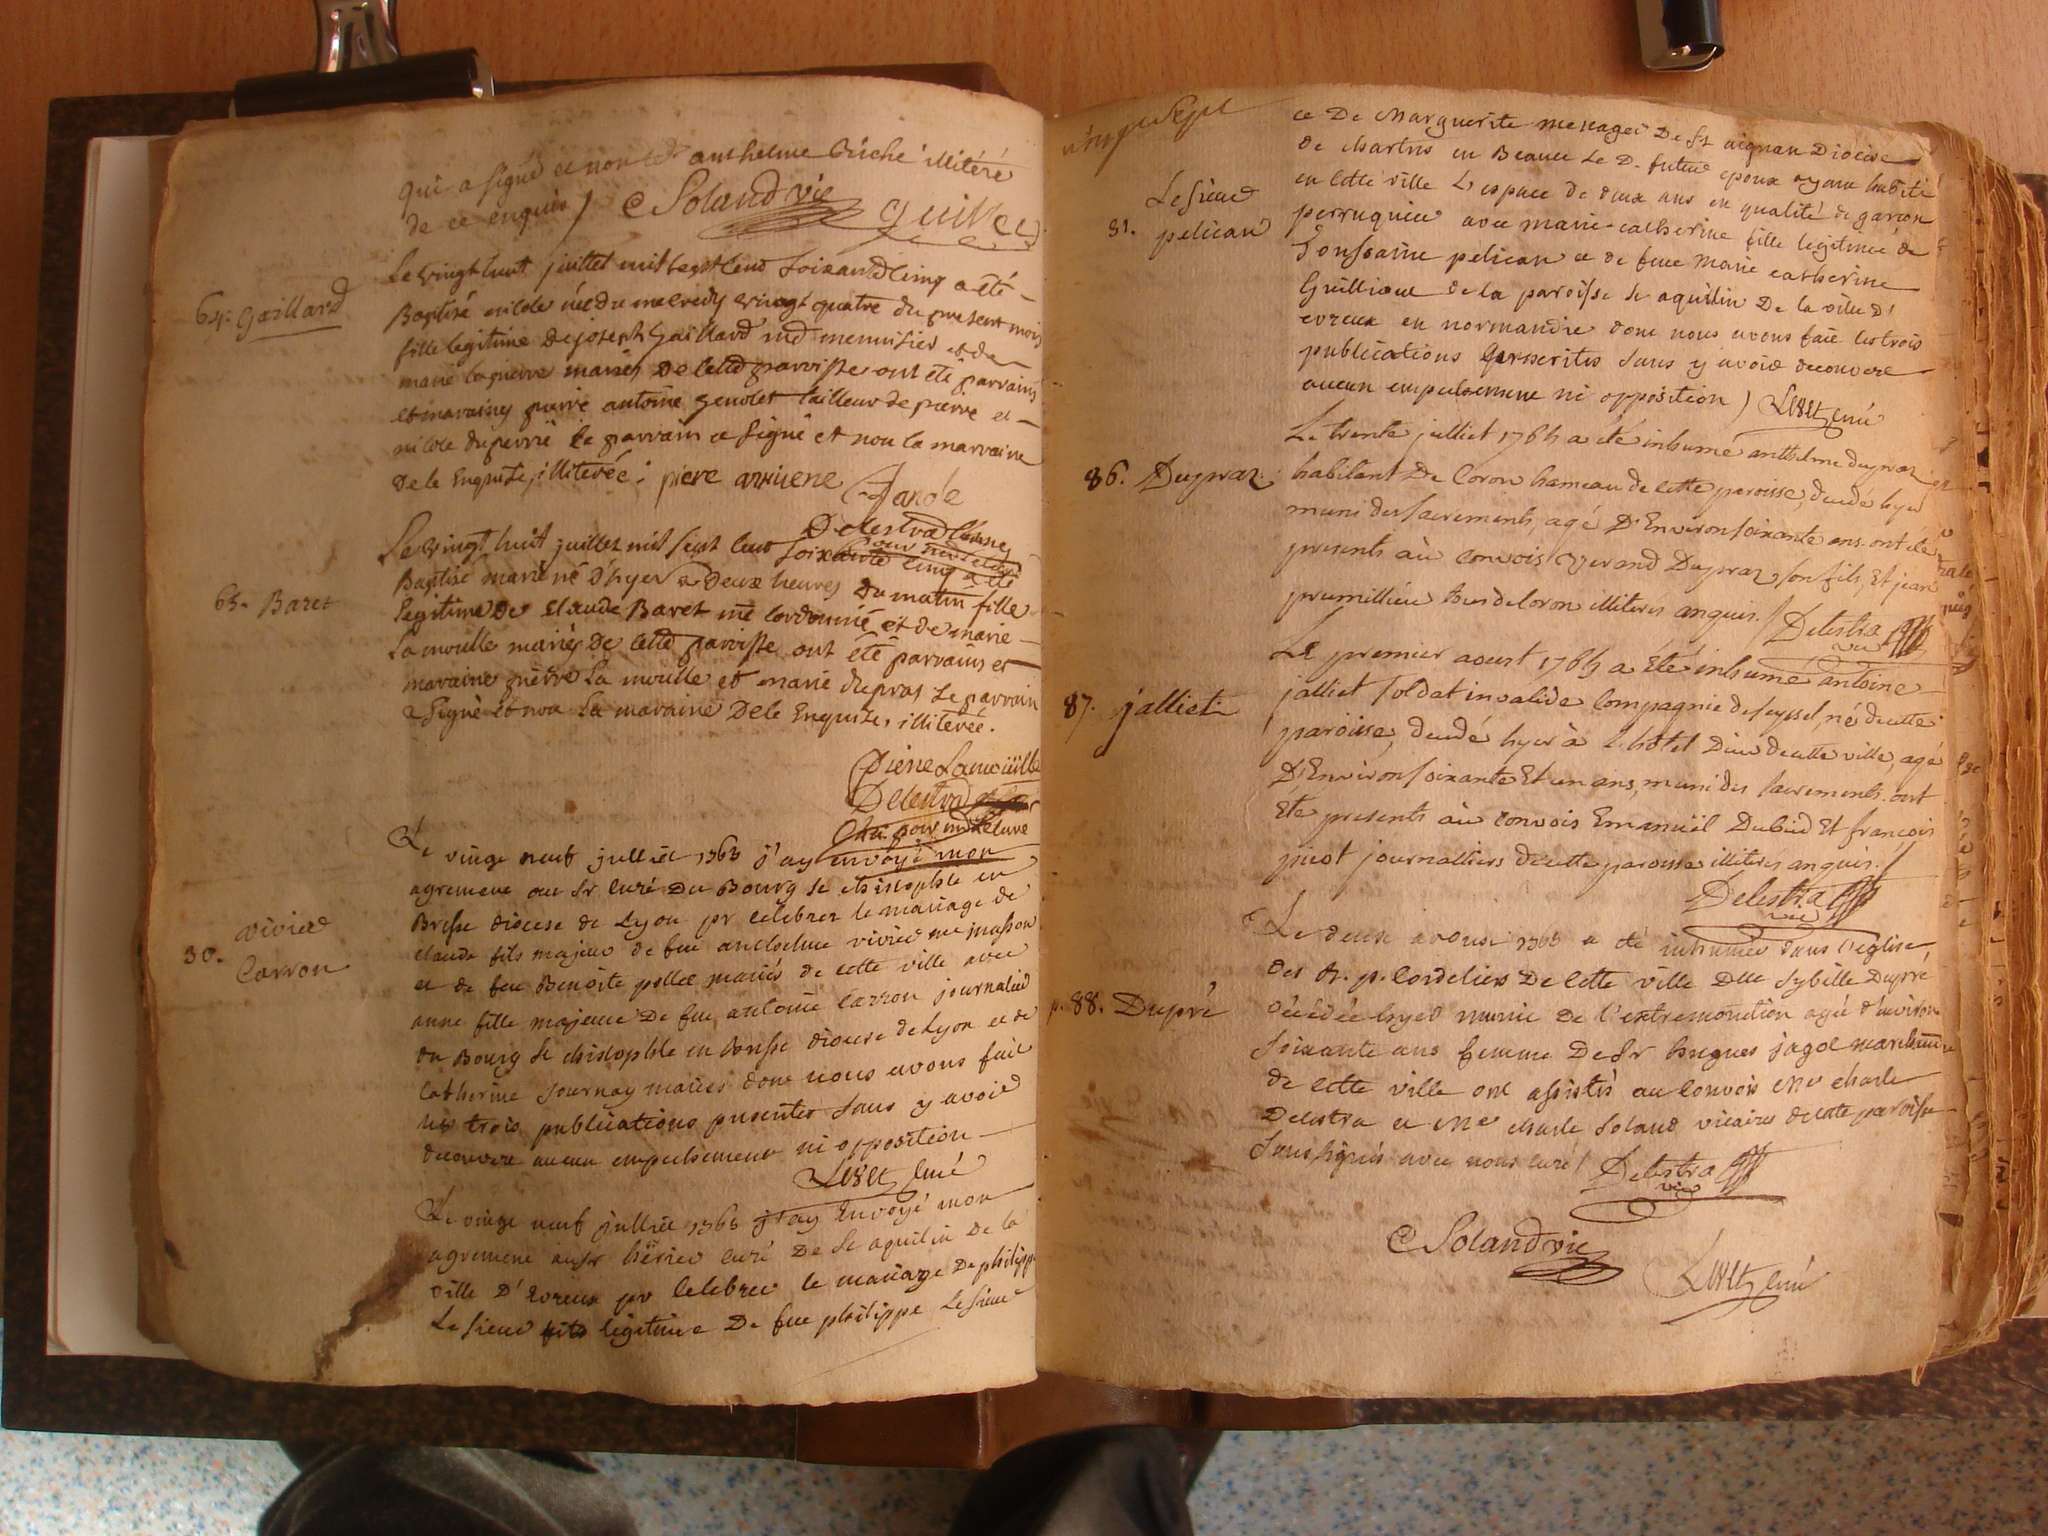 qui a signé et non led. anthelme Guiché illitéré
de ce enquis / C Soland vic Guillet
64. Gaillard
Le vingt huit juillet mil sept cent soixante cinq a été
Baptisé nicole née du mecredy vingt quatre du present mois
fille legitime de joseph Gaillard md menuisier et de
marie laguerre mariés de cette parroisse ont été parrains
et maraines pierre antoine genolet tailleur de pierre et
nicole duperrié le parrain a signé et non la marraine
de le Enquise, illiterée. piere
Delestra
65. Baret
Le vingt huit juillet mil sept cent soixante cinq a été
Baptisé marie né d'hyer a deux heures du matin fille
legitime de Claude Baret me cordonnié et de marie
La mouille mariés de cette paroisse ont été parrains et
maraine pierre La mouille et marie dupras le parrain
a signé et non la maraine de le Enquise, illiterée.
Piere Lamouille
Delestra
30. vivier
Carron
Le vingt neuf julliet 1765 j'ay envoyé mon
agrement au Sr curé du Bourg St christophle en
Bresse diocese de Lyon pr celebrer le mariage de
claude fils majeur de feu anthelme vivier me masson
et de feu Benoite pollet mariés de cette ville avec
anne fille majeure de feu antoine Carron journalier
du Bourg St christophle en Bresse diocese de Lyon et de
Catherine Journay mariés dont nous avons fait
les trois publications presentes sans y avoir
decouvert aucun empechement ni opposition
curé
Le vingt neuf julliet 1765 j'ay Envoyé mon
agrement au Sr curé de St aquilin de la
ville D'Evreux pr celebrer le mariage de philippe
Le sieur fils legitime de feu philippe Le sieur
vingt Sept
et De Marguerite menager De St aignan Diocese
de chartres en Beauce Le D. futur epoux ayant habité
en cette ville L'espace de deux ans en qualité de garcon
81. Le sieur
pelican
perruquier avec marie catherine fille legitime de
Toussaint pelican et de feue Marie catherine
Guillioue de la paroisse St aquilin De la ville d'
evreux en normandie dont nous avons fait les trois
publications sans y avoir decouvert
aucun empechement ni opposition / curé
86. Dupraz
Le trente julliet 1765 a été inhumé anthelme dupraz
habitant De Coron hameau de cette paroisse, decedé hyer
muni des sacrements, agé D'Environ soixante ans. ont été
presents au convois verand Dupraz son fils, Et jean
premillieu tous de Coron illiterés enquis. / Delestra
vic
87. jalliet
Le premier aoust 1765 a Eté inhumé antoine
jalliet soldat invalide Compagnie de seyssel, né de cette
paroisse, decedé hyer à L'hôtel Dieu de cette ville, agé
D'Environ soixante Et un ans, muni des sacrements. ont
Eté presents au convois Emanuël Dubied Et francois
picot journalliers de cette paroisse illiterés enquis. /
Delestra
vic
p. 88. Dupré
Le deux avoust 1765 a été inhumée dans l'eglise
des R. p. Cordeliers De cette ville Dlle Sybille Dupré
décédée hyer munie de l'extremonction agée d'environ
soixante ans femme De Sr hugues jagot marchand
de cette ville ont assistés au convois Me charle
Delestra et Me charle Soland vicaires de cette paroisse
soussignés avec nous curé / Delestra
vic
C Soland vic
curé